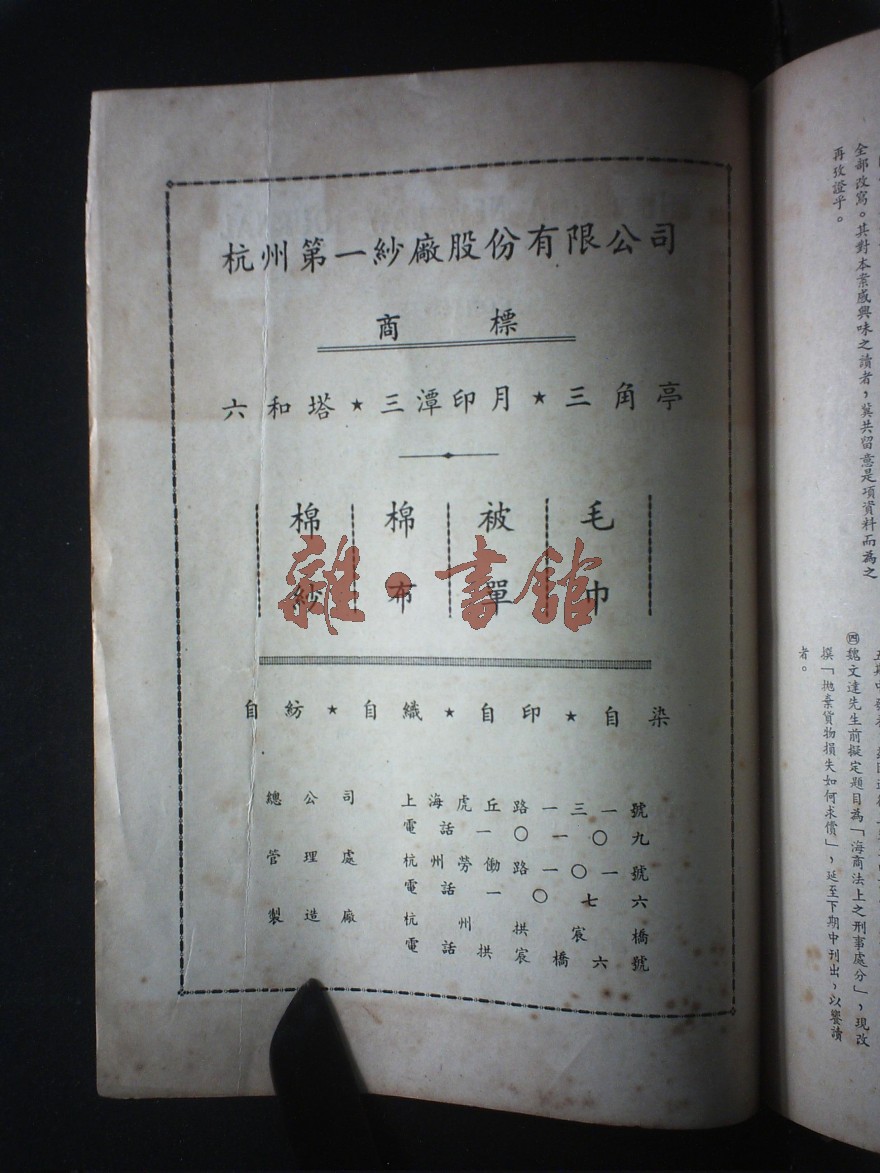 杭州第一紗廠股份有限公司
商標
六和塔★三潭印月★三角亭
棉紗 棉布 被單 毛巾
雜·書館
自紡★自織★自印★自染
總公司 上海虎丘路一三一號
電話一〇一〇九
管理處 杭州勞働路一〇一號
電話一〇七六
製造廠 杭州拱宸橋
電話拱宸橋六號
全部改寫。其對本案感興味之讀者，冀共留意是項資料而為之
再攷證乎。
㈣魏文達先生前擬定題目為「海商法上之刑事處分」，現改
撰「拋棄貨物損失如何求償」，延至下期中刊出，以饗讀
者。